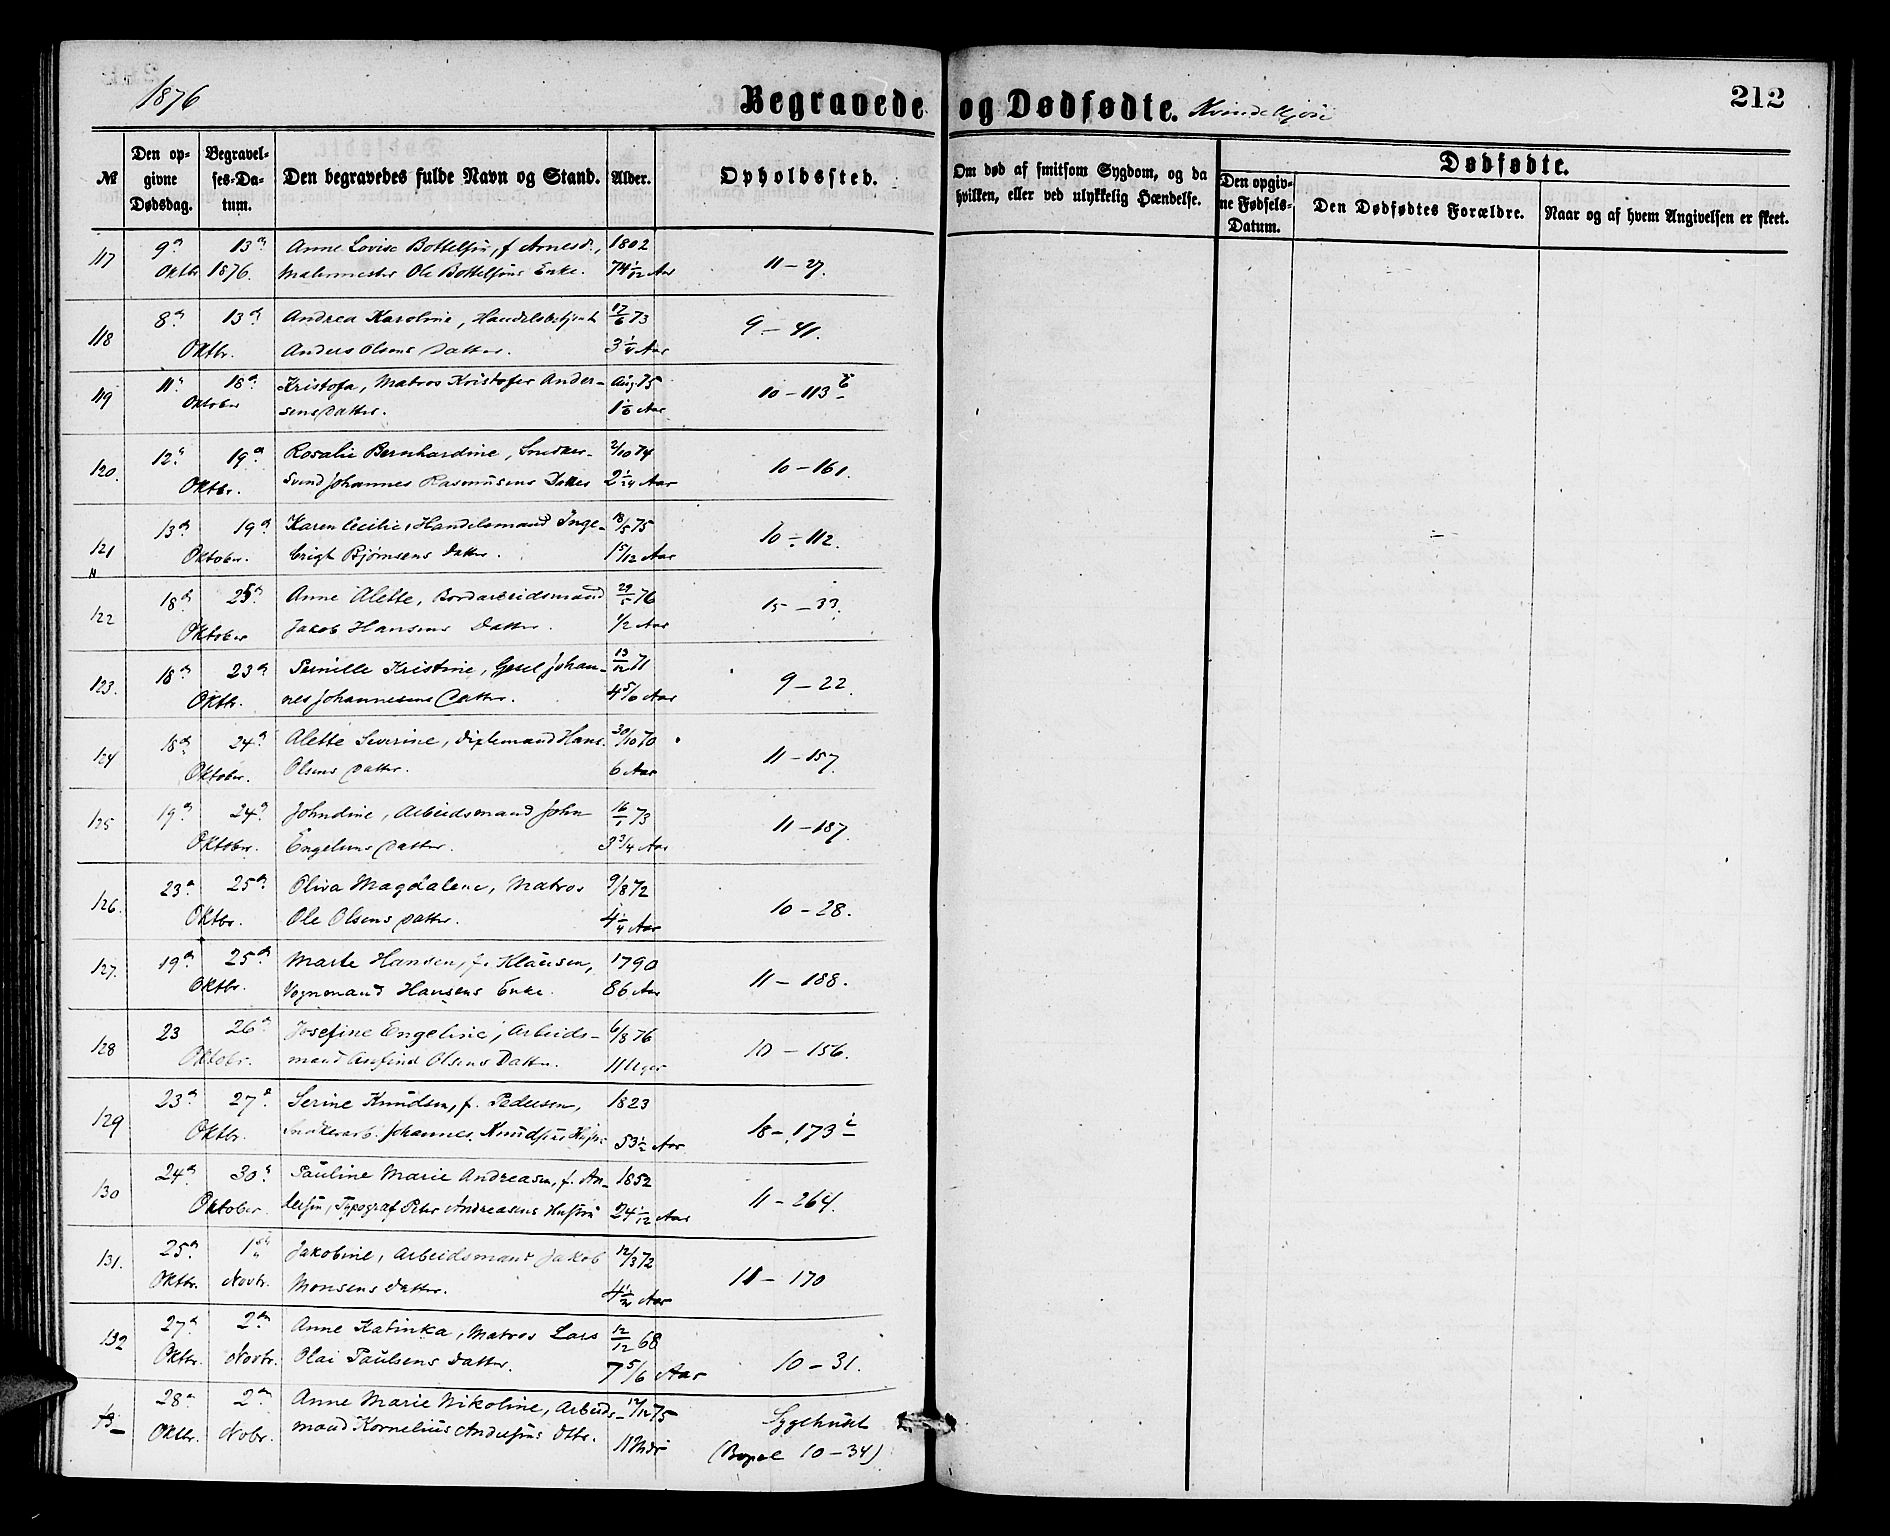 1876
Begravede og Dødfødte. Kvindekjøn
212
№
Den opgivne Dødsdag.
Begravelses-Datum.
Den begravedes fulde Navn og Stand.
Alder.
Opholdssted.
Om død af smitsom Sygdom, og da hvilken, eller ved ulykkelig Hændelse.
Dødfødte.
Den opgivne Fødsels-Datum.
Den Dødfødtes Forældre.
Naar og af hvem Angivelsen er skeet.
117 9de 13de Anne Lovise Bottelsen, f. Arnesd., 1802
Oktbr 1876. Malermester Ole Bottelsens Enke. 74 1/12 Aar 11–27.
118 8de 13de Andrea Karoline, Handelsbetjent 17/6 73 9–41.
Oktbr. Anders Olsens Datter. 3 1/4 Aar
119 11te 18de Kristofa, Matros Kristofer Ander- Aug. 75 10–113
Oktober sens Datter. 1 1/6 Aar
120. 12te 19de Rosalie Bernhardine, Snedker- 2/10 74 10–161.
Oktbr. Svend Johannes Rasmusens Datter 2 1/24 Aar
121 13de 19de Karen Cecilie, Handelsmand Inge- 18/5 75 10–112.
Oktober. brigt Bjørnsens Datter. 1 5/12 Aar
122 18de 25de Anne Alette, Bordarbeidsmand 29/5 76 15–33.
Oktober Jakob Hansens Datter. 1/2 Aar
123. 18de 23de Pernille Kristine, Gesel Johan- 13/12 71 9–22.
Oktbr. nes Johannesens Datter. 4 5/6 Aar
124 18de 24de Alette Severine, Dixlemand Hans 30/10 70 11–157.
Oktober. Olsens Datter. 6 Aar
125 19de 24de Johndine, Arbeidsmand John 16/1 73 11–187.
Oktober. Engelsens Datter. 3 3/4 Aar
126. 23de 25de Oliva Magdalene, Matros 9/8 72 10–28.
Oktbr. Ole Olsens Datter. 4 1/4 Aar
127. 19de 25de Marte Hansen, f. Klausen, 1790 11–188.
Oktbr. Vognmand Hansens Enke. 86 Aar
128 23 26de Josefine Engeline, Arbeids- 6/8 76 10–156.
Oktobr. mand Arnfind Olsens Datter. 11 Uger
129 23de 27de Serine Knudsen, f. Pedersen, 1823
Oktbr. Snekerarb. Johannes Knudsens Hustru 53 1/2 Aar 18–173
130 24de 30te Pauline Marie Andreasen, f. An- 1852 11–264.
Oktober. dersen, Typograf Peter Andreasens Hustru 24 1/12 Aar
131. 25de 1ste Jakobine, Arbeidsmand Jakob 12/3 72
Oktbr. Novbr. Monsens Datter. 4 1/2 Aar 18–170
132 27de 2den Anne Katinka, Matros Lars 12/12 68
Oktbr. Novbr. Olai Paulsens Datter. 7 5/6 Aar 10–31.
28de 2den Anne Marie Nikoline, Arbeids- 17/12 75 Sygehuset
Oktbr. Nobr. mand Kornelius Andersens Dttr. 11 Mdr (Bopæl 10–34)